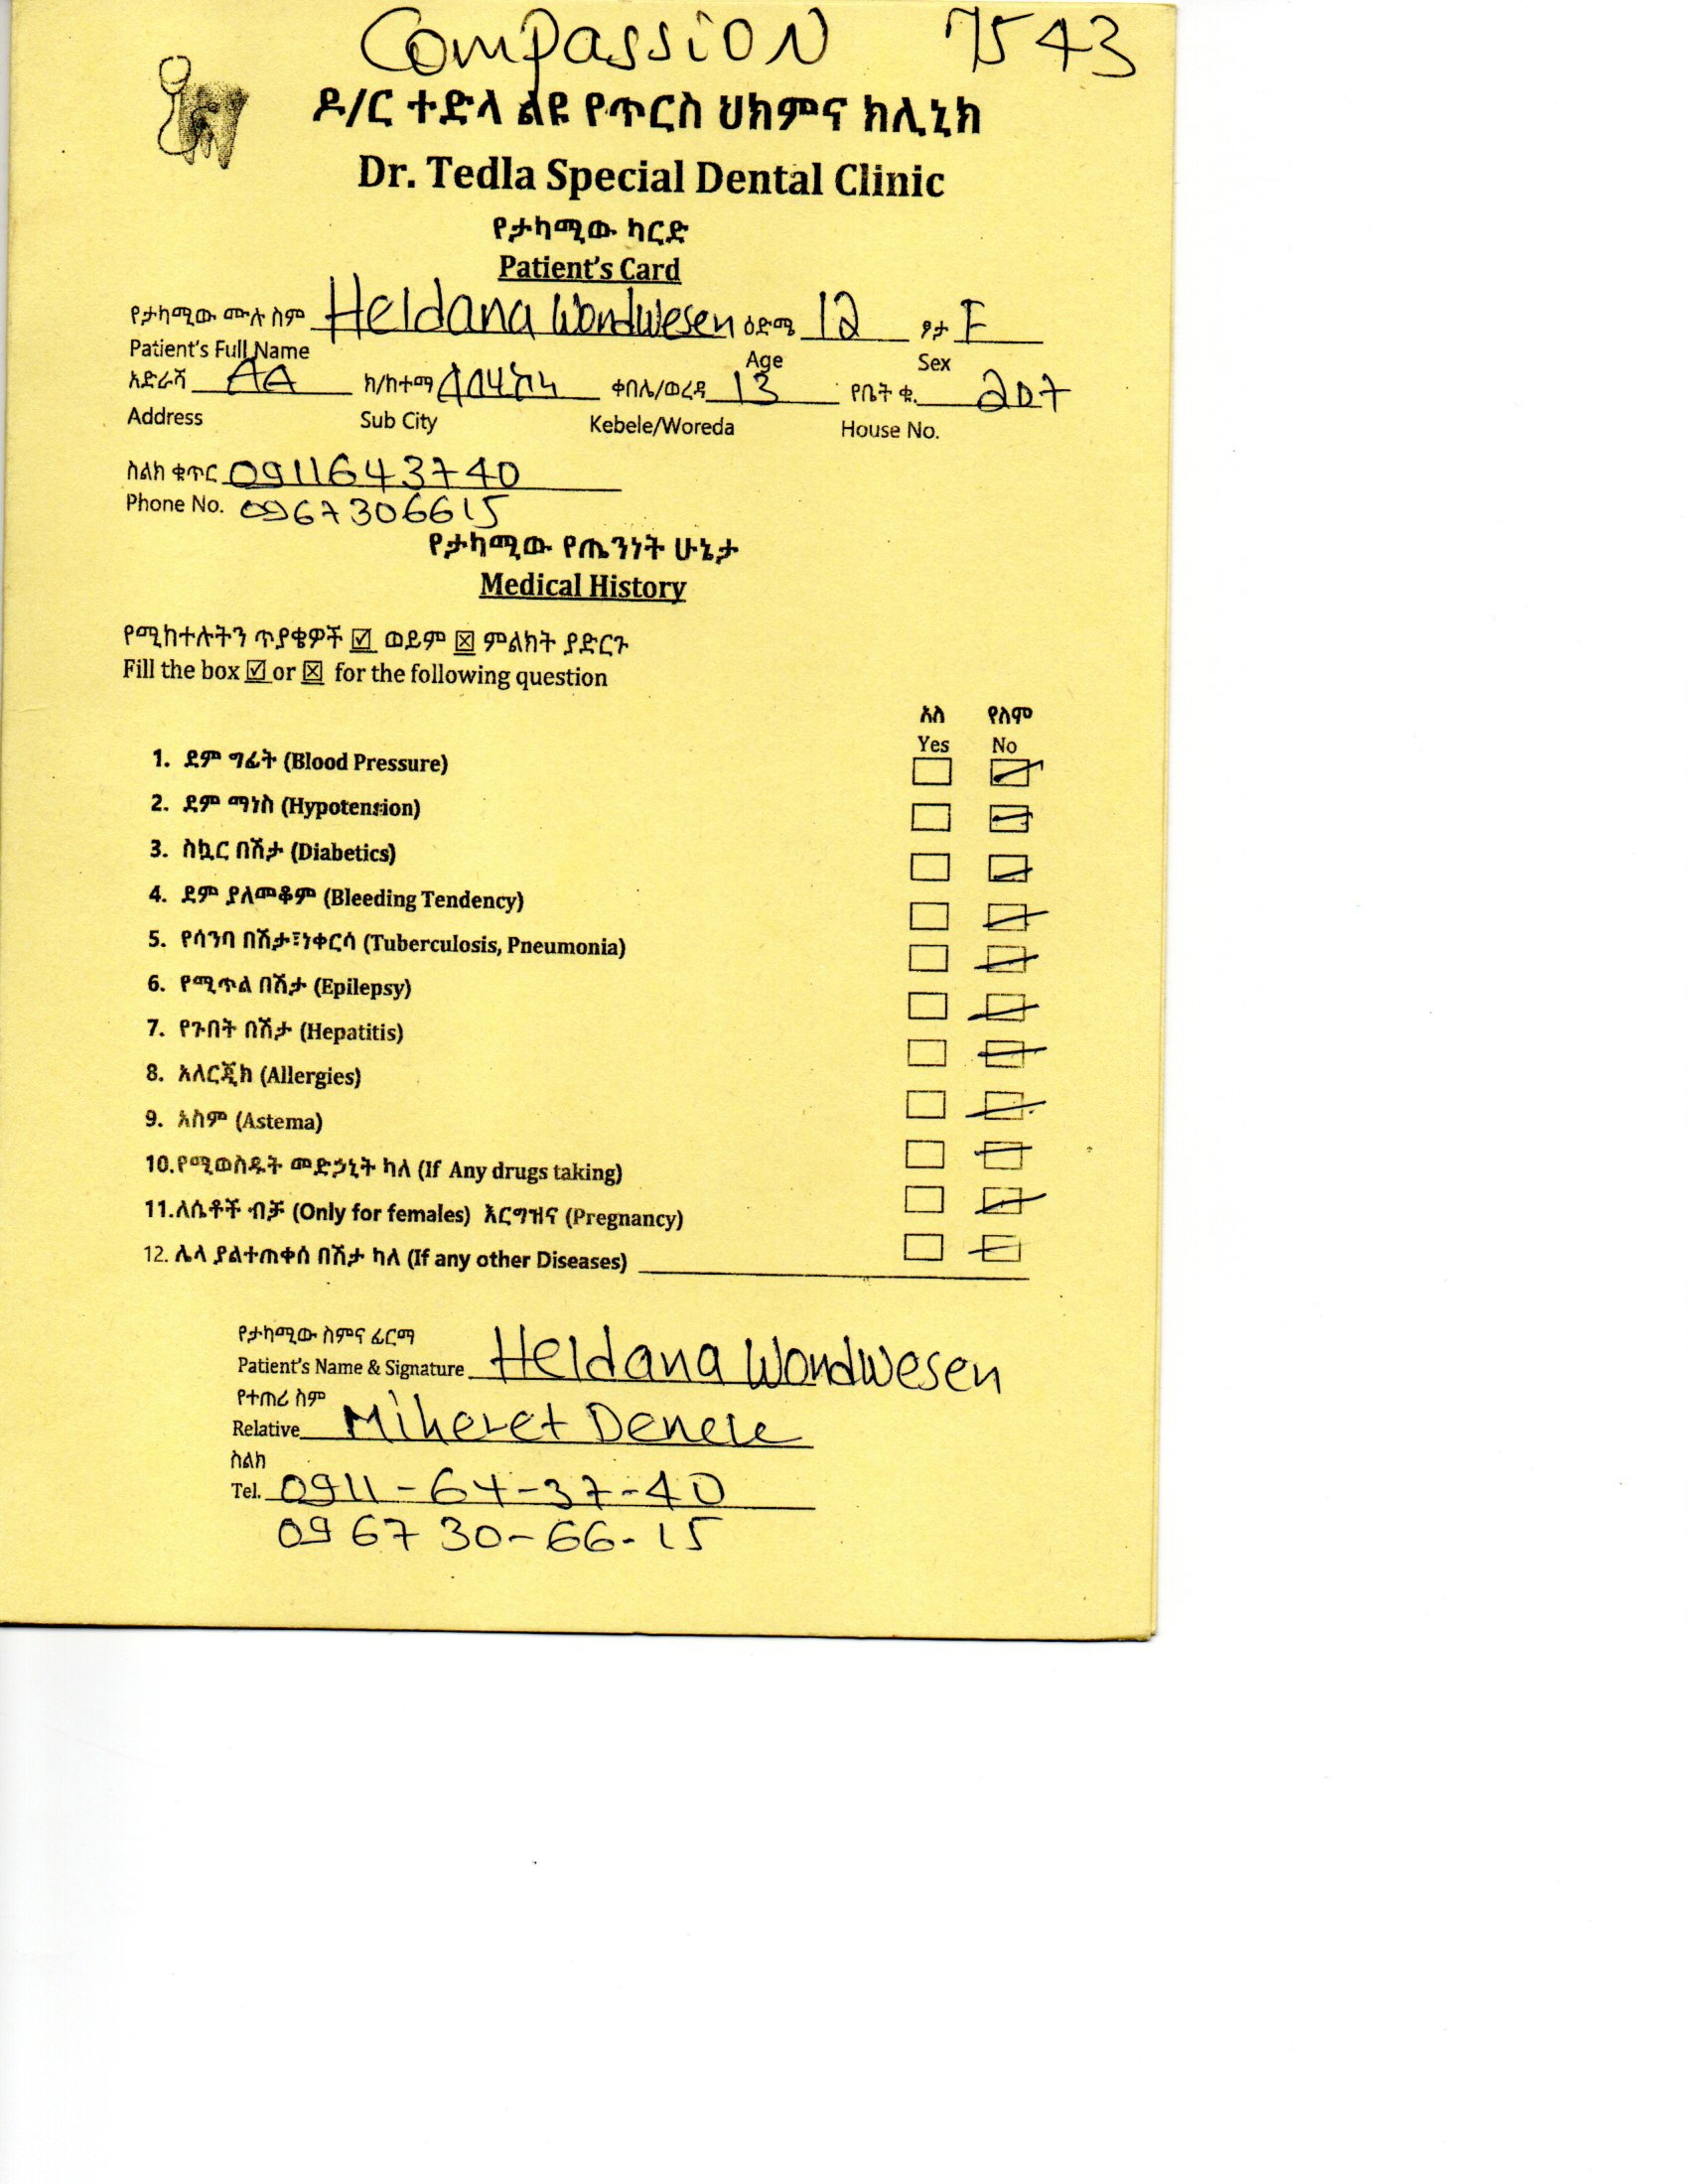 Compassion 7543
ዶ/ር ተድላ ልዩ የጥርስ ህክምና ክሊኒክ
Dr. Tedla Special Dental Clinic
የታካሚው ካርድ
Patient's Card
የታካሚው ሙሉ ስም Heldana Wondwesen ዕድሜ 12 ፆታ F
Patient's Full Name Age Sex
አድራሻ AA ክ/ከተማ ቀበሌ/ወረዳ 13 የቤት ቁ. 207
Address Sub City Kebele/Woreda House No.
ስልክ ቁጥር 0911643740
Phone No. 0967306615
የታካሚው የጤንነት ሁኔታ
Medical History
የሚከተሉትን ጥያቄዎች ☑ ወይም ☒ ምልክት ያድርጉ
Fill the box ☑ or ☒ for the following question
አለ የለም
Yes No
1. ደም ግፊት (Blood Pressure)
2. ደም ማነስ (Hypotension)
3. ስኳር በሽታ (Diabetics)
4. ደም ያለመቆም (Bleeding Tendency)
5. የሳንባ በሽታ፣ነቀርሳ (Tuberculosis, Pneumonia)
6. የሚጥል በሽታ (Epilepsy)
7. የጉበት በሽታ (Hepatitis)
8. አለርጂክ (Allergies)
9. አስም (Astema)
10.የሚወስዱት መድኃኒት ካለ (If Any drugs taking)
11.ለሴቶች ብቻ (Only for females) እርግዝና (Pregnancy)
12. ሌላ ያልተጠቀሰ በሽታ ካለ (If any other Diseases)
የታካሚው ስምና ፊርማ
Patient's Name & Signature Heldana Wondwesen
የተጠሪ ስም
Relative Miheret
ስልክ
Tel. 0911-64-37-40
0967 30-66-15